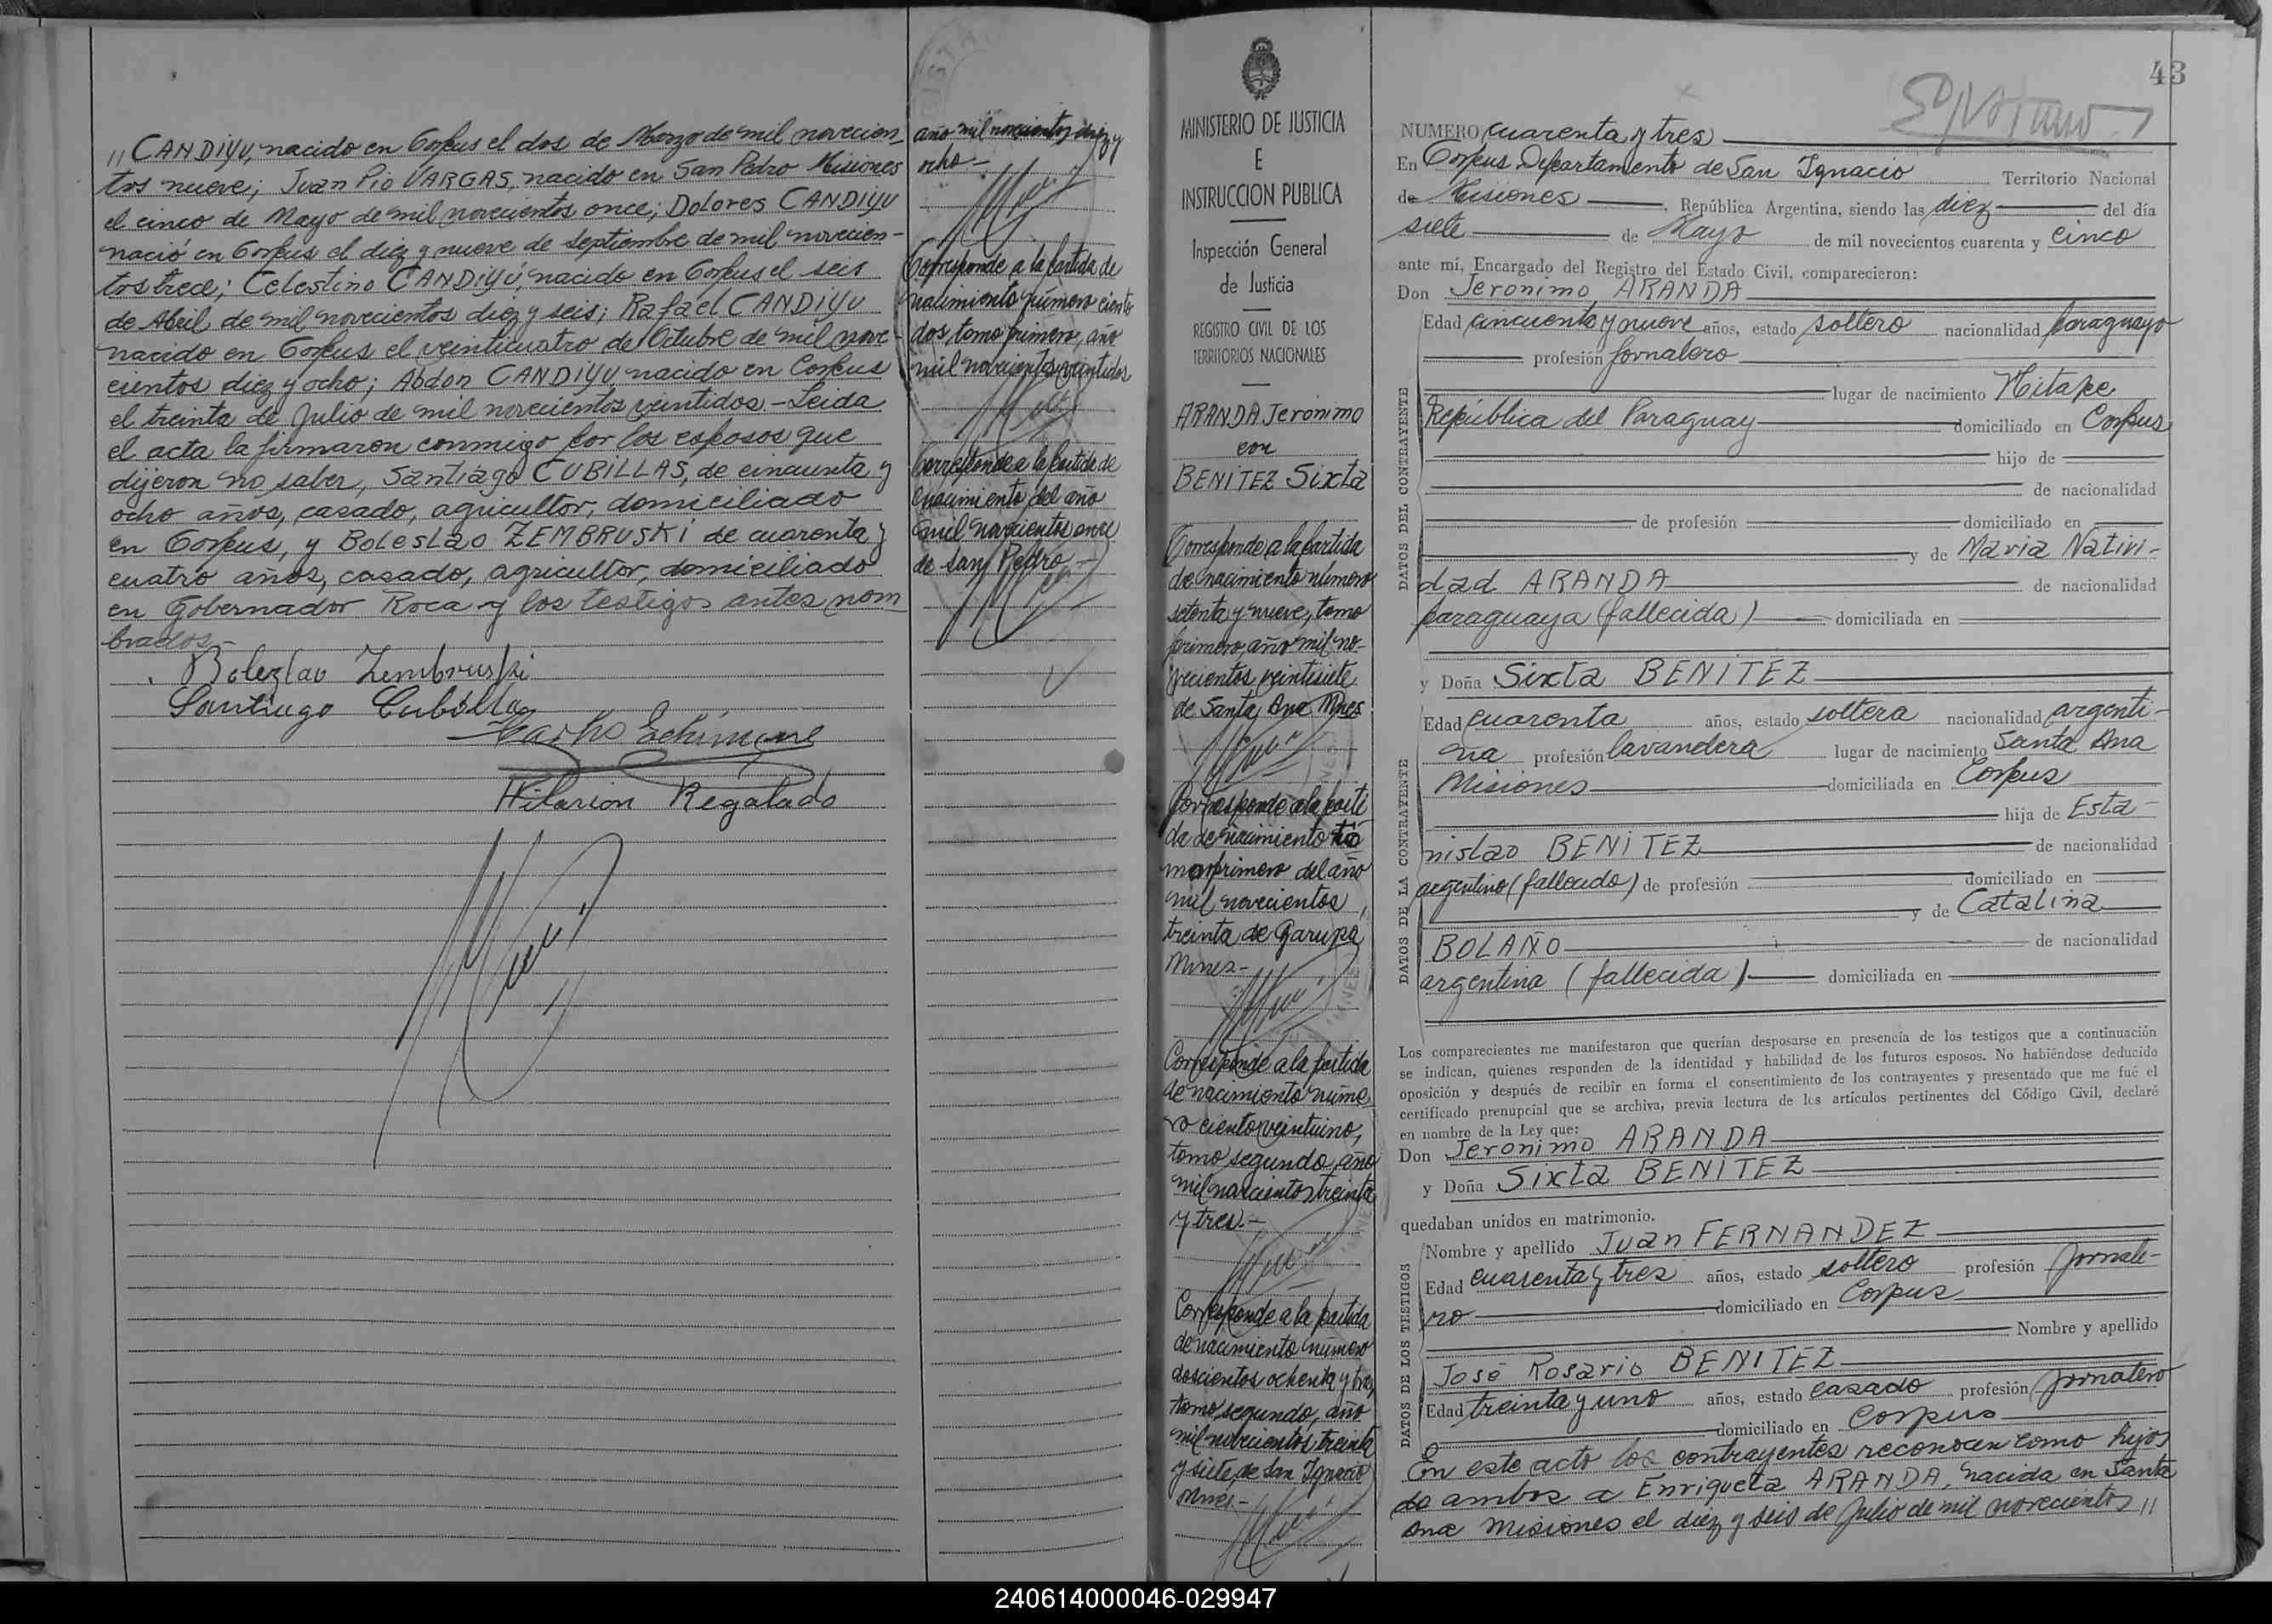 // CANDIYÚ, nacido en Corpus el dos de Marzo de mil novecien-
tos nueve; Juan Pio VARGAS, nacido en San Pedro Misiones
el cinco de Mayo de mil novecientos once; Dolores CANDIYÚ
nació en Corpus el diez y nueve de septiembre de mil novecien-
tos trece; Celestino CANDIYÚ, nacido en Corpus el seis
de Abril de mil novecientos diez y seis; Rafael CANDIYÚ
nacido en Corpus el veinticuatro de Octubre de mil nove-
cientos diez y ocho; Abdon CANDIYÚ nacido en Corpus
el treinta de Julio de mil novecientos veintidos.- Leida
el acta la firmaron conmigo por los esposos que
dijeron no saber, Santiago CUBILLAS, de cincuenta y
ocho años, casado, agricultor, domiciliado
en Corpus, y Boleslao ZEMBRUSKI de cuarenta y
cuatro años, casado, agricultor, domiciliado
en Gobernador Roca y los testigos antes nom
brados.-
Bolezlao Zembruski
Santiago Cubilla
Hilarion Regalado
año mil novecientos diez y
ocho.-
Corresponde a la partida de
nacimiento número ciento
dos, tomo primero, año
mil novecientos veintidos
Corresponde a la partida de
nacimiento del año
mil novecientos once
de San Pedro.-
MINISTERIO DE JUSTICIA
E
INSTRUCCION PUBLICA
Inspección General
de Justicia
REGISTRO CIVIL DE LOS
TERRITORIOS NACIONALES
ARANDA Jerónimo
con
BENITEZ Sixta
Corresponde a la partida
de nacimiento número
setenta y nueve, tomo
primero, año mil no-
vecientos veintisiete
de Santa Ana Mnes
Corresponde a la parti
da de nacimiento to
mo primero del año
mil novecientos
treinta de Garupá
Mnes.-
Corresponde a la partida
de nacimiento núme
ro ciento veintiuno,
tomo segundo, año
mil novecientos treinta
y tres.-
Corresponde a la partida
de nacimiento número
doscientos ochenta y tres,
tomo segundo, año
mil novecientos treinta
y siete, de San Ignacio
Mnes.-
43
NUMERO cuarenta y tres
En Corpus Departamento de San Ignacio Territorio Nacional
de Misiones, República Argentina, siendo las diez del día
siete de Mayo de mil novecientos cuarenta y cinco
ante mí, Encargado del Registro del Estado Civil, comparecieron:
Don Jerónimo ARANDA
DATOS DEL CONTRAYENTE
Edad cincuenta y nueve años, estado soltero nacionalidad paraguayo
profesión jornalero
lugar de nacimiento Hitape
República del Paraguay domiciliado en Corpus
hijo de
de nacionalidad
de profesión domiciliado en
y de Maria Nativi-
dad ARANDA de nacionalidad
paraguaya (fallecida) domiciliada en
y Doña Sixta BENITEZ
DATOS DE LA CONTRAYENTE
Edad cuarenta años, estado soltera nacionalidad argenti-
na profesión lavandera lugar de nacimiento Santa Ana
Misiones domiciliada en Corpus
hija de Esta-
nislao BENITEZ de nacionalidad
argentino (fallecido) de profesión domiciliado en
y de Catalina
BOLAÑO de nacionalidad
argentina (fallecida) domiciliada en
Los comparecientes me manifestaron que querían desposarse en presencia de los testigos que a continuación
se indican, quienes responden de la identidad y habilidad de los futuros esposos. No habiéndose deducido
oposición y después de recibir en forma el consentimiento de los contrayentes y presentado que me fué el
certificado prenupcial que se archiva, previa lectura de los artículos pertinentes del Código Civil, declaré
en nombre de la Ley que:
Don Jerónimo ARANDA
y Doña Sixta BENITEZ
quedaban unidos en matrimonio.
DATOS DE LOS TESTIGOS
Nombre y apellido Juan FERNANDEZ
Edad cuarenta y tres años, estado soltero profesión jornale-
ro domiciliado en Corpus
Nombre y apellido
José Rosario BENITEZ
Edad treinta y uno años, estado casado profesión jornalero
domiciliado en Corpus
En este acto los contrayentes reconocen como hijos
de ambos a Enriqueta ARANDA, nacida en Santa
Ana Misiones el diez y seis de Julio de mil novecientos //
240614000046-029947